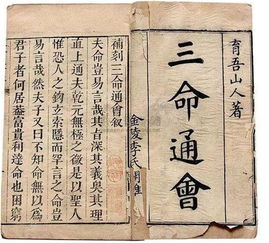 育吾山人著
三命通會
金陵李氏
補刻三命通會叙
夫命豈易言哉其旨深其義奧其理
直上通夫乾元無極之後是以聖人
惟恐人之鈎玄索隱而罕言之命豈
易言哉然夫子又曰不知命無以爲
君子者何居蓋富貴利達命也困窮